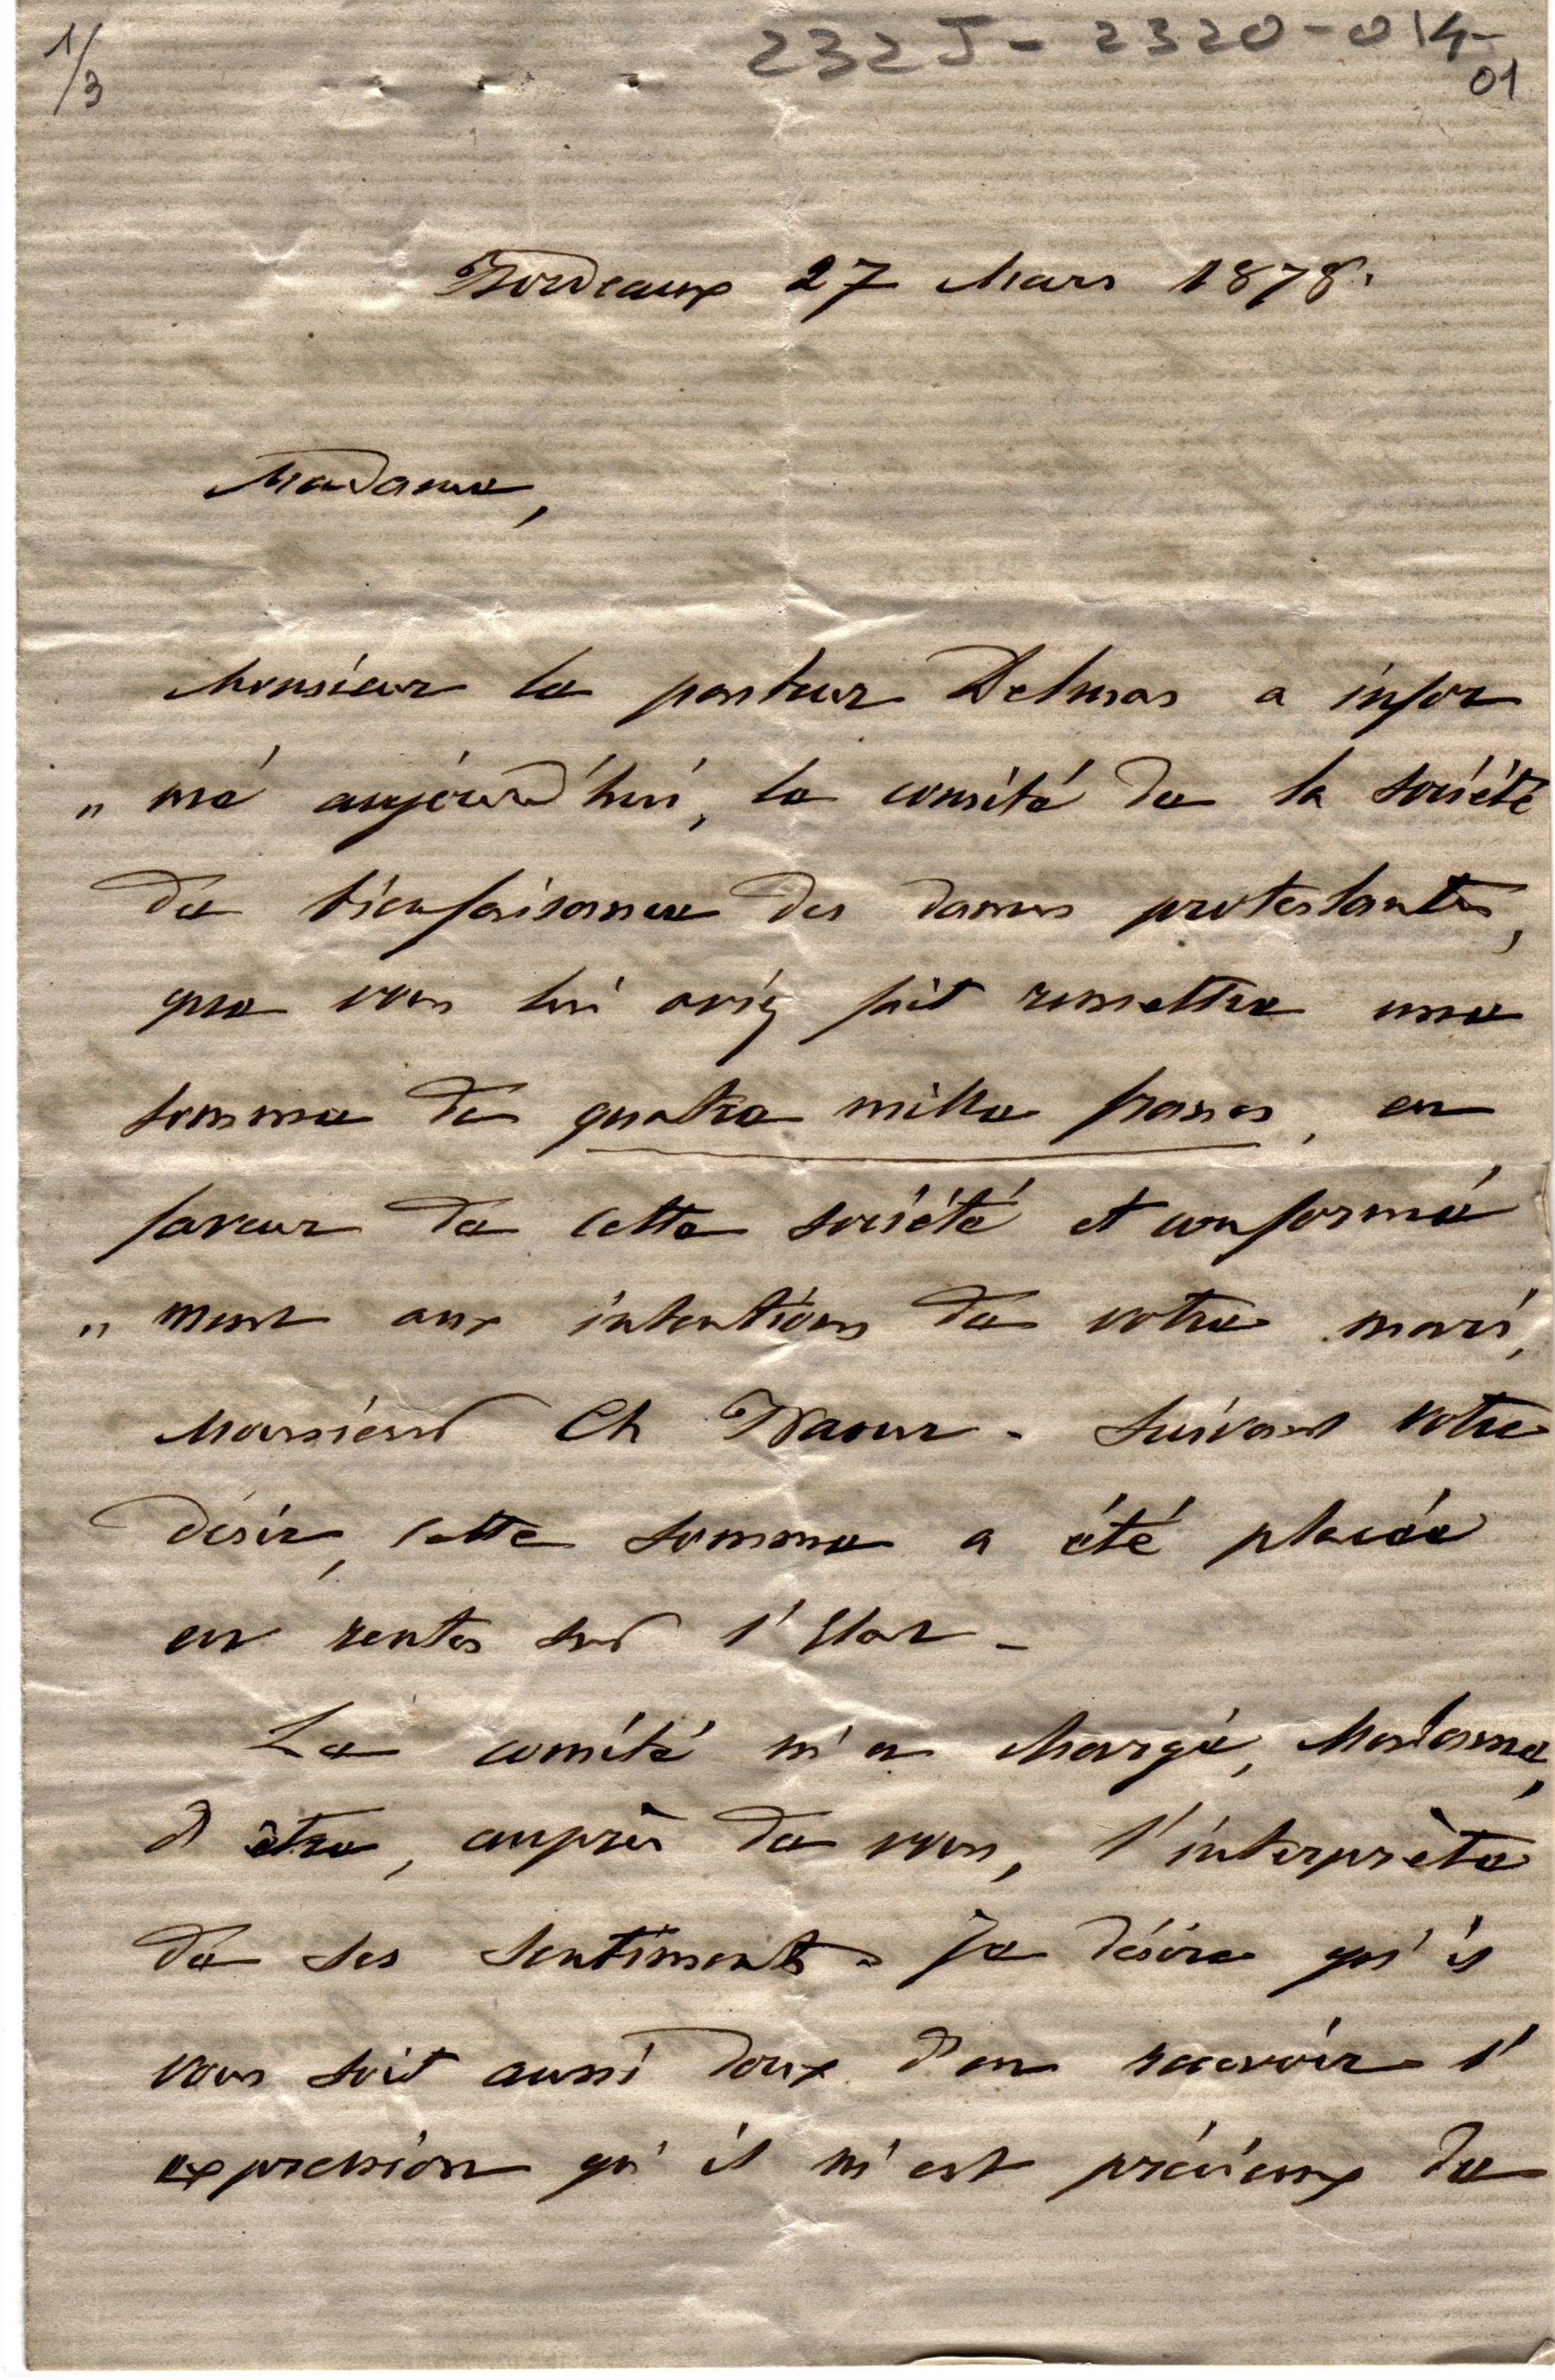 1/3
232 J - 2320 - 014-
01
Bordeaux 27 Mars 1878.
Madame,
Monsieur le pasteur Delmas a infor
" mé aujourd'hui, le comité de la société
de bienfaisance des dames protestantes,
que vous lui aviez fait remettre une
somme de quatre mille francs, en
faveur de cette société et conformé
" ment aux intentions de votre mari,
Monsieur Ch - Suivant votre
désir, cette somme a été placée
en rentes sur l'Etat -
Le comité m'a chargé, Madame,
d'être, auprès de vous, l'interprète
de ses sentiments - Je désire qu'il
vous soit aussi doux d'en recevoir l'
expression qu'il m'est précieux de